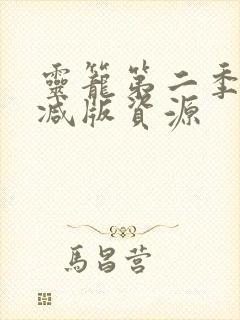 靈籠第二季
减版資源
馬昌营